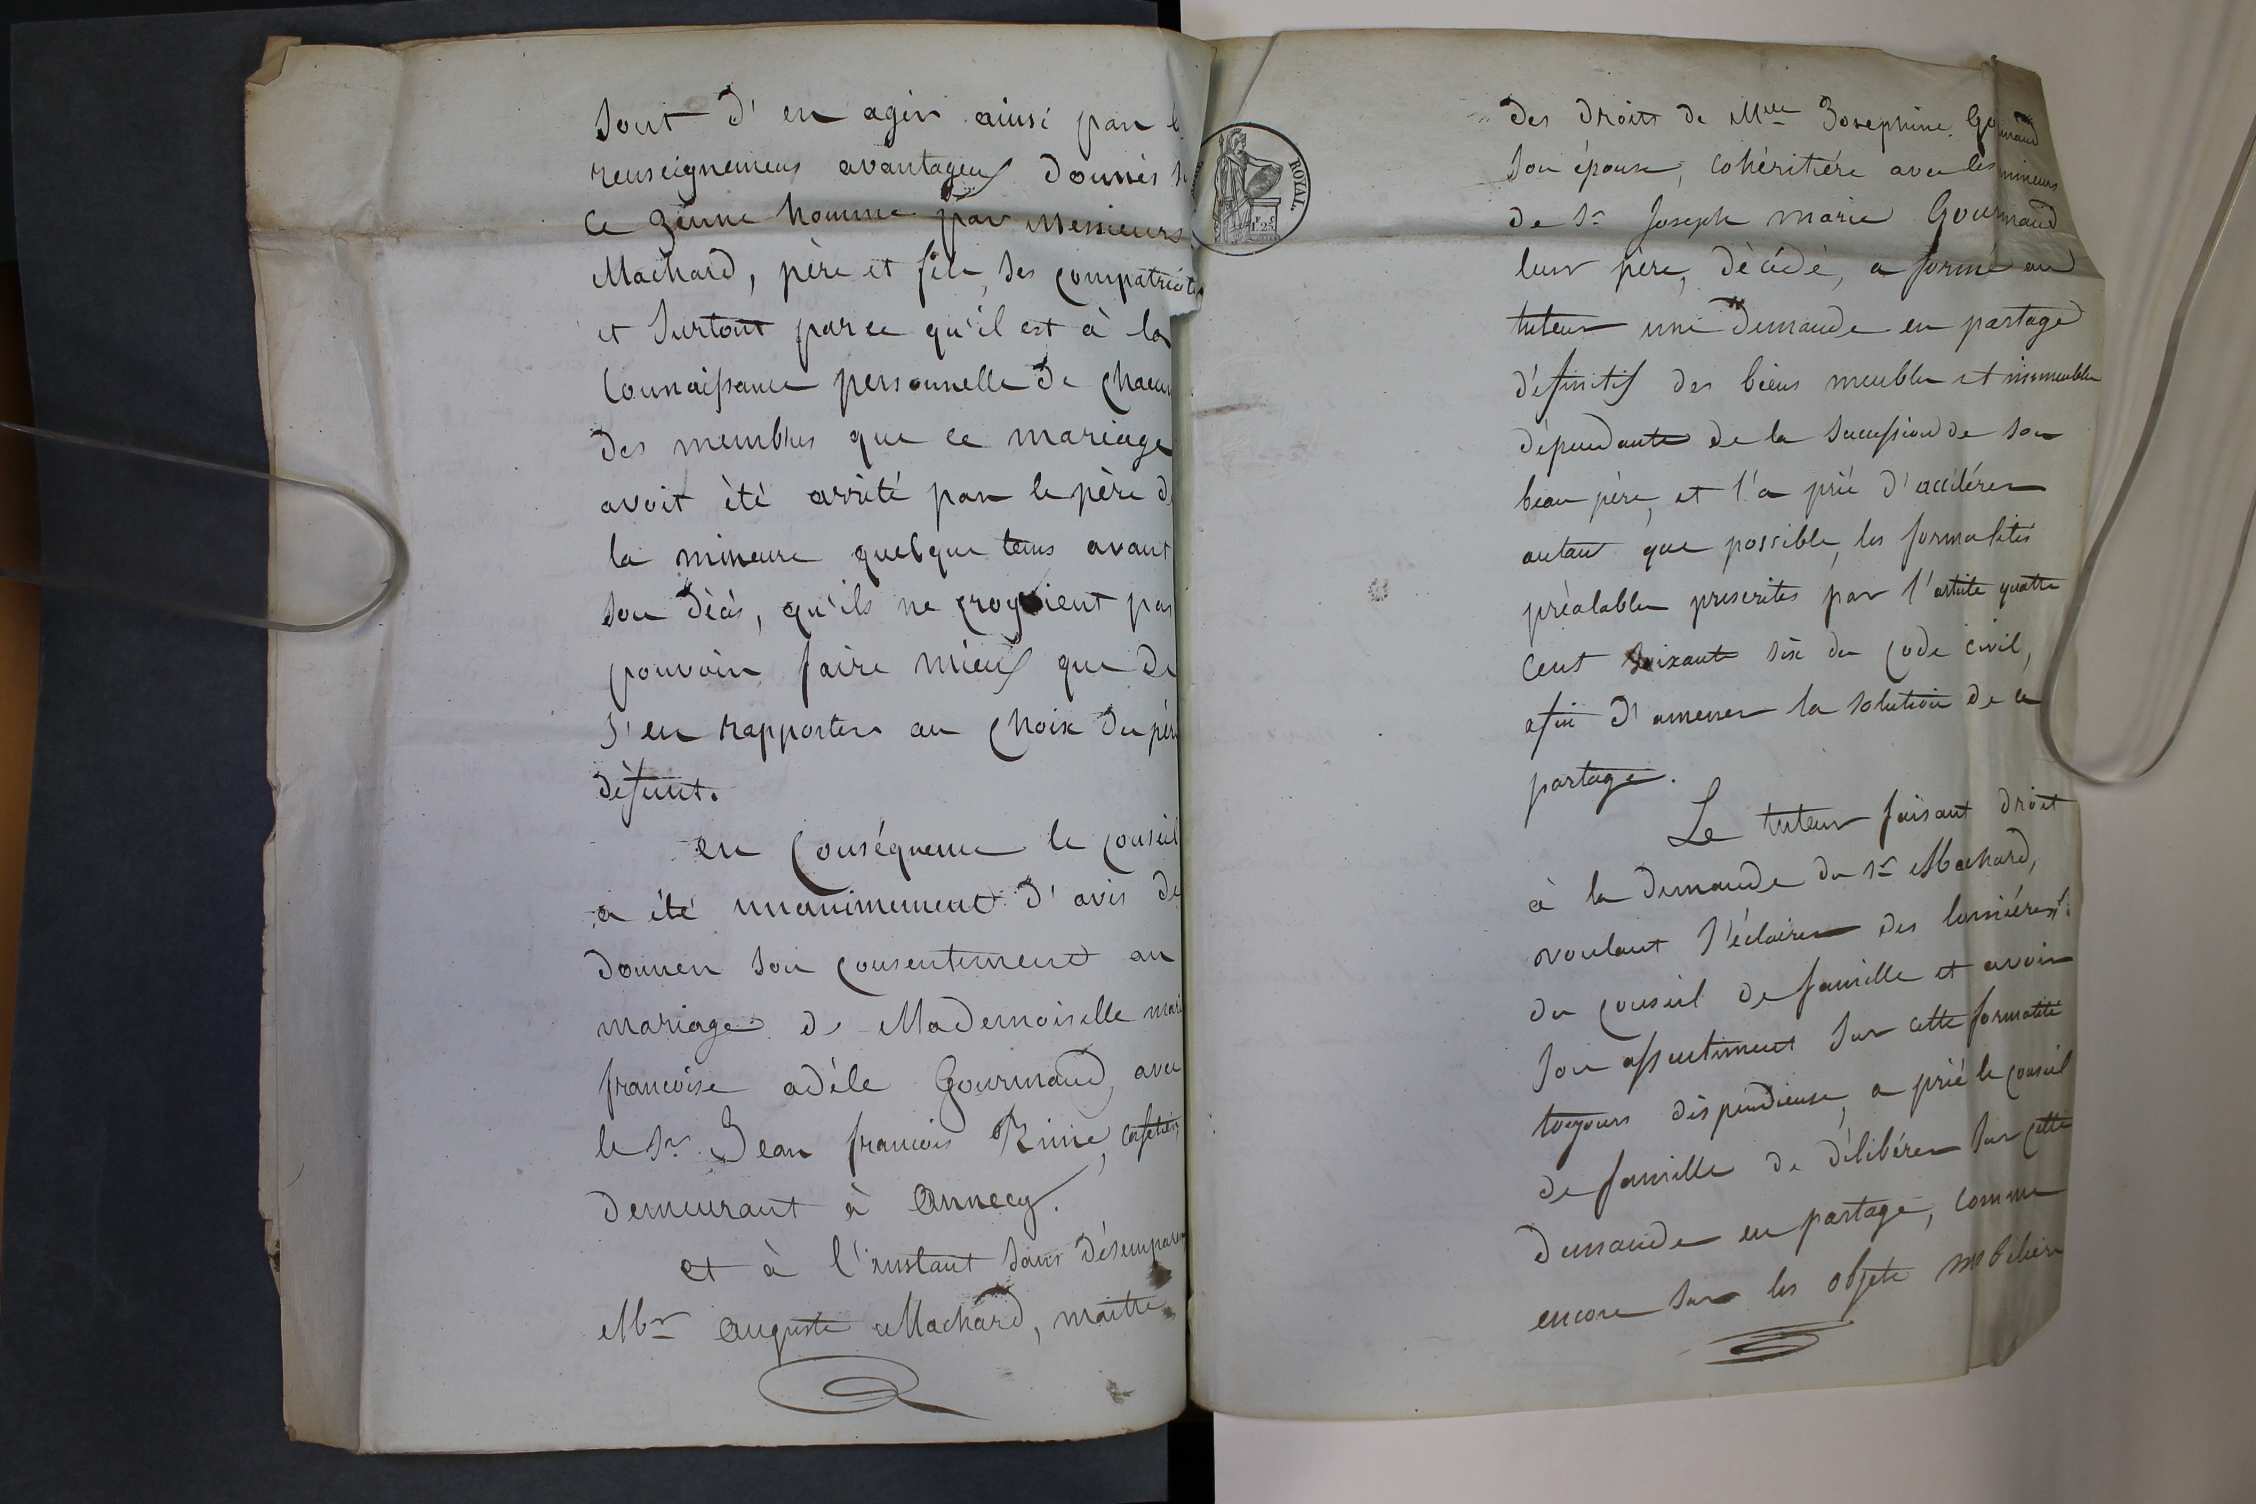 sont d'en agir ainsi par l
renseignemens avantageux donnés s
ce jeune homme par Messieurs
Machard, père et fils, ses compatriotes
et surtout parce qu'il est à la
connaissance personnelle de chacun
des membres que ce mariage
avoit été arrêté par le père d
la mineure quelque tems avant
son décès, qu'ils ne croyoient pas
pouvoir faire mieux que de
s'en rapporter au choix du père
défunt.
en conséquence le conseil
a été unanimement d'avis de
donner son consentement au
mariage de Mademoiselle mari
francoise adèle Gourmand, avec
le Sr. Jean francois cafetier,
demeurant à Annecy.
et à l'instant sans désemparer
Mr Auguste Machard, maître
ROYAL.
1F 25c
des droits de Mme Josephine Gourmand
son épouse, cohéritière avec les mineurs
de Sr Joseph marie Gourmand
leur père, décédé, a formé au
tuteur une demande en partage
définitif des biens meubles et immeubles
dépendants de la succession de son
beau père, et l'a prié d'accélérer
autant que possible, les formalités
préalables prescrites par l'article quatre
cent soixante six du code civil,
afin d'amener la solution de ce
partage.
Le tuteur faisant droit
à la demande du Sr Machard,
voulant s'éclairer des lumières
du conseil de famille et avoir
son assentiment sur cette formalité
toujours dispendieuse, a prié le conseil
de famille de délibérer sur cette
demande en partage, comme
encore sur les objets mobiliers